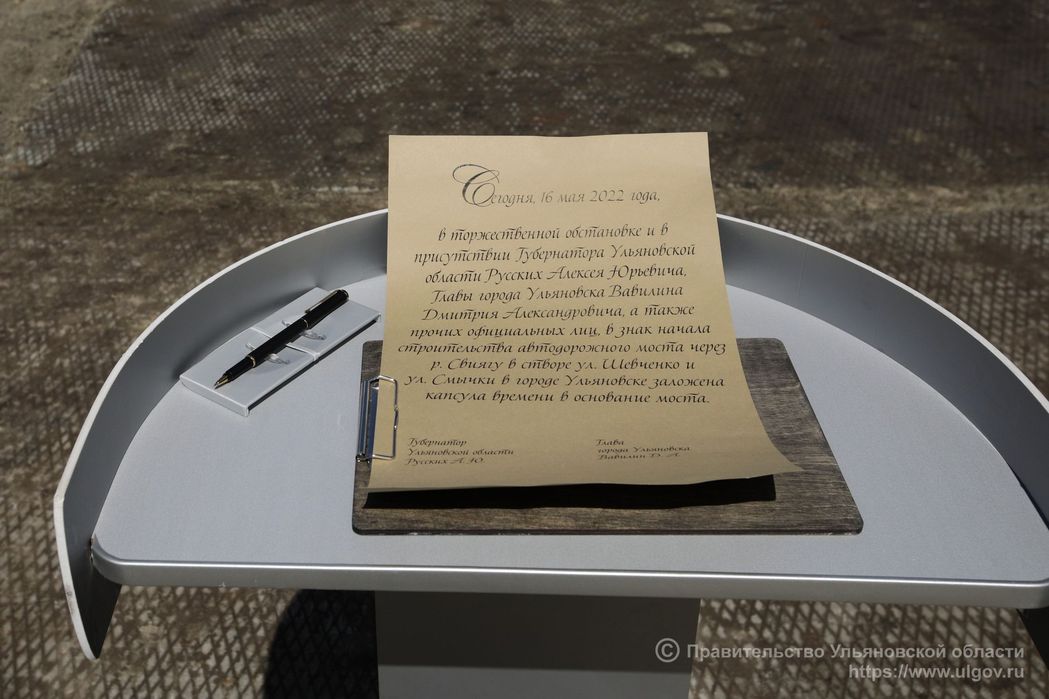 Сегодня, 16 мая 2022 года,
в торжественной обстановке и в
присутствии Губернатора Ульяновской
области Русских Алексея Юрьевича,
Главы города Ульяновска Вавилина
Дмитрия Александровича, а также
прочих официальных лиц, в знак начала
строительства автодорожного моста через
р. Свиягу в створе ул. Шевченко и
ул. Смычки в городе Ульяновске заложена
капсула времени в основание моста.
Губернатор
Ульяновской области
Русских А. Ю.
Глава
города Ульяновска
Вавилин Д. А.
© Правительство Ульяновской области
https://www.ulgov.ru